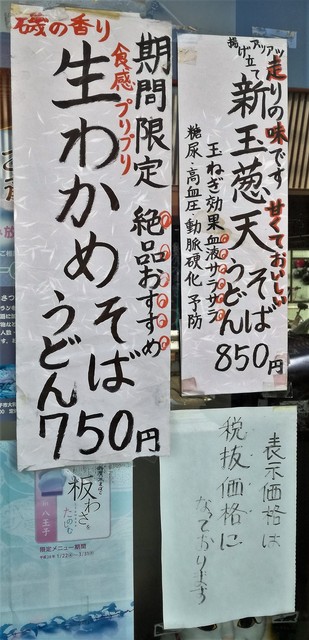 磯の香り
期間限定 絶品おすすめ
食感プリプリ
生わかめそば
うどん
750円
走りの味です 甘くておいしい
揚げ立てアツアツ
新玉葱天そば
うどん
850円
玉ねぎ効果血液サラサラ
糖尿・高血圧・動脈硬化 予防
表示価格は
税抜価格に
なっております
板わさ
たのむ
八王子
限定メニュー期間